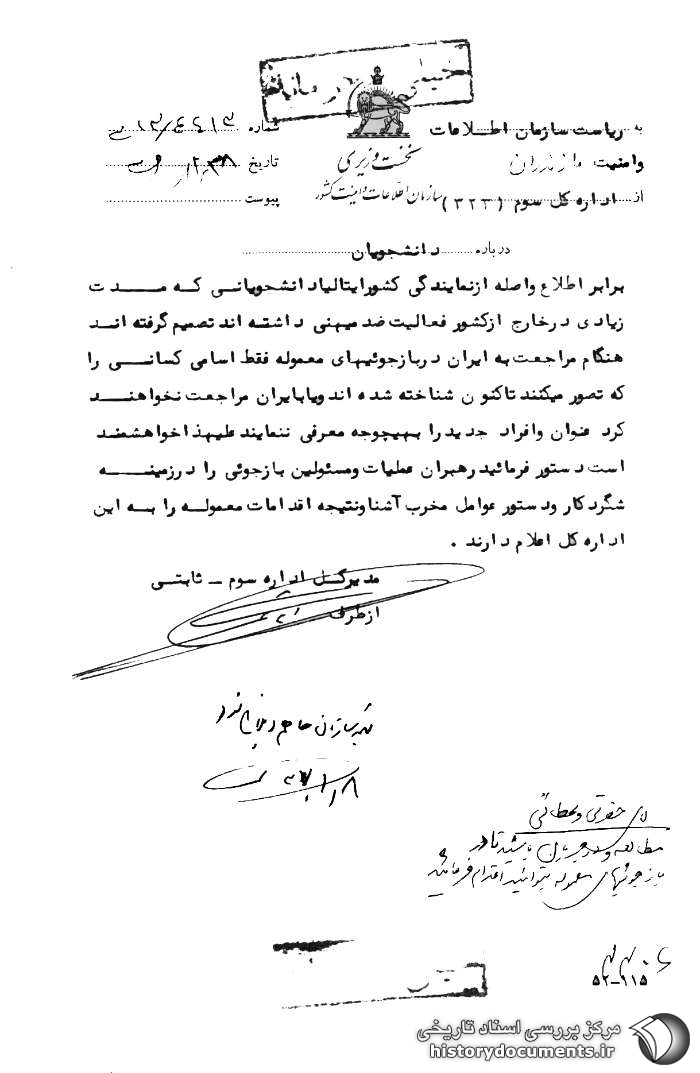 خیلی محرمانه
به ریاست سازمان اطلاعات
وامنیت مازندران
از اداره کل سوم (۳۲۳)
نخست وزیری
سازمان اطلاعات و امنیت کشور
شماره
تاریخ
پیوست
درباره دانشجویان
برابر اطلاع واصله ازنمایندگی کشورایتالیادانشجویانی که مدت
زیادی درخارج ازکشور فعالیت ضد میهنی داشته اند تصمیم گرفته اند
هنگام مراجعت به ایران دربازجوئیهای معموله فقط اسامی کسانی را
که تصور میکنند تاکنون شناخته شده اند ویابایران مراجعت نخواهند
کرد عنوان وافراد جدید را بهیچوجه معرفی ننمایند علیهذا خواهشمند
است دستور فرمائید رهبران عملیات ومسئولین بازجوئی را درزمینه
شگرد کار ودستور عوامل مخرب آشنا ونتیجه اقدامات معموله را به این
اداره کل اعلام دارند .
مدیرکل اداره سوم – ثابتی
ازطرف
مطالعه
بازجوئیهای معموله بتوانید اقدام فرمائید
مرکز بررسی اسناد تاریخی
historydocuments.ir